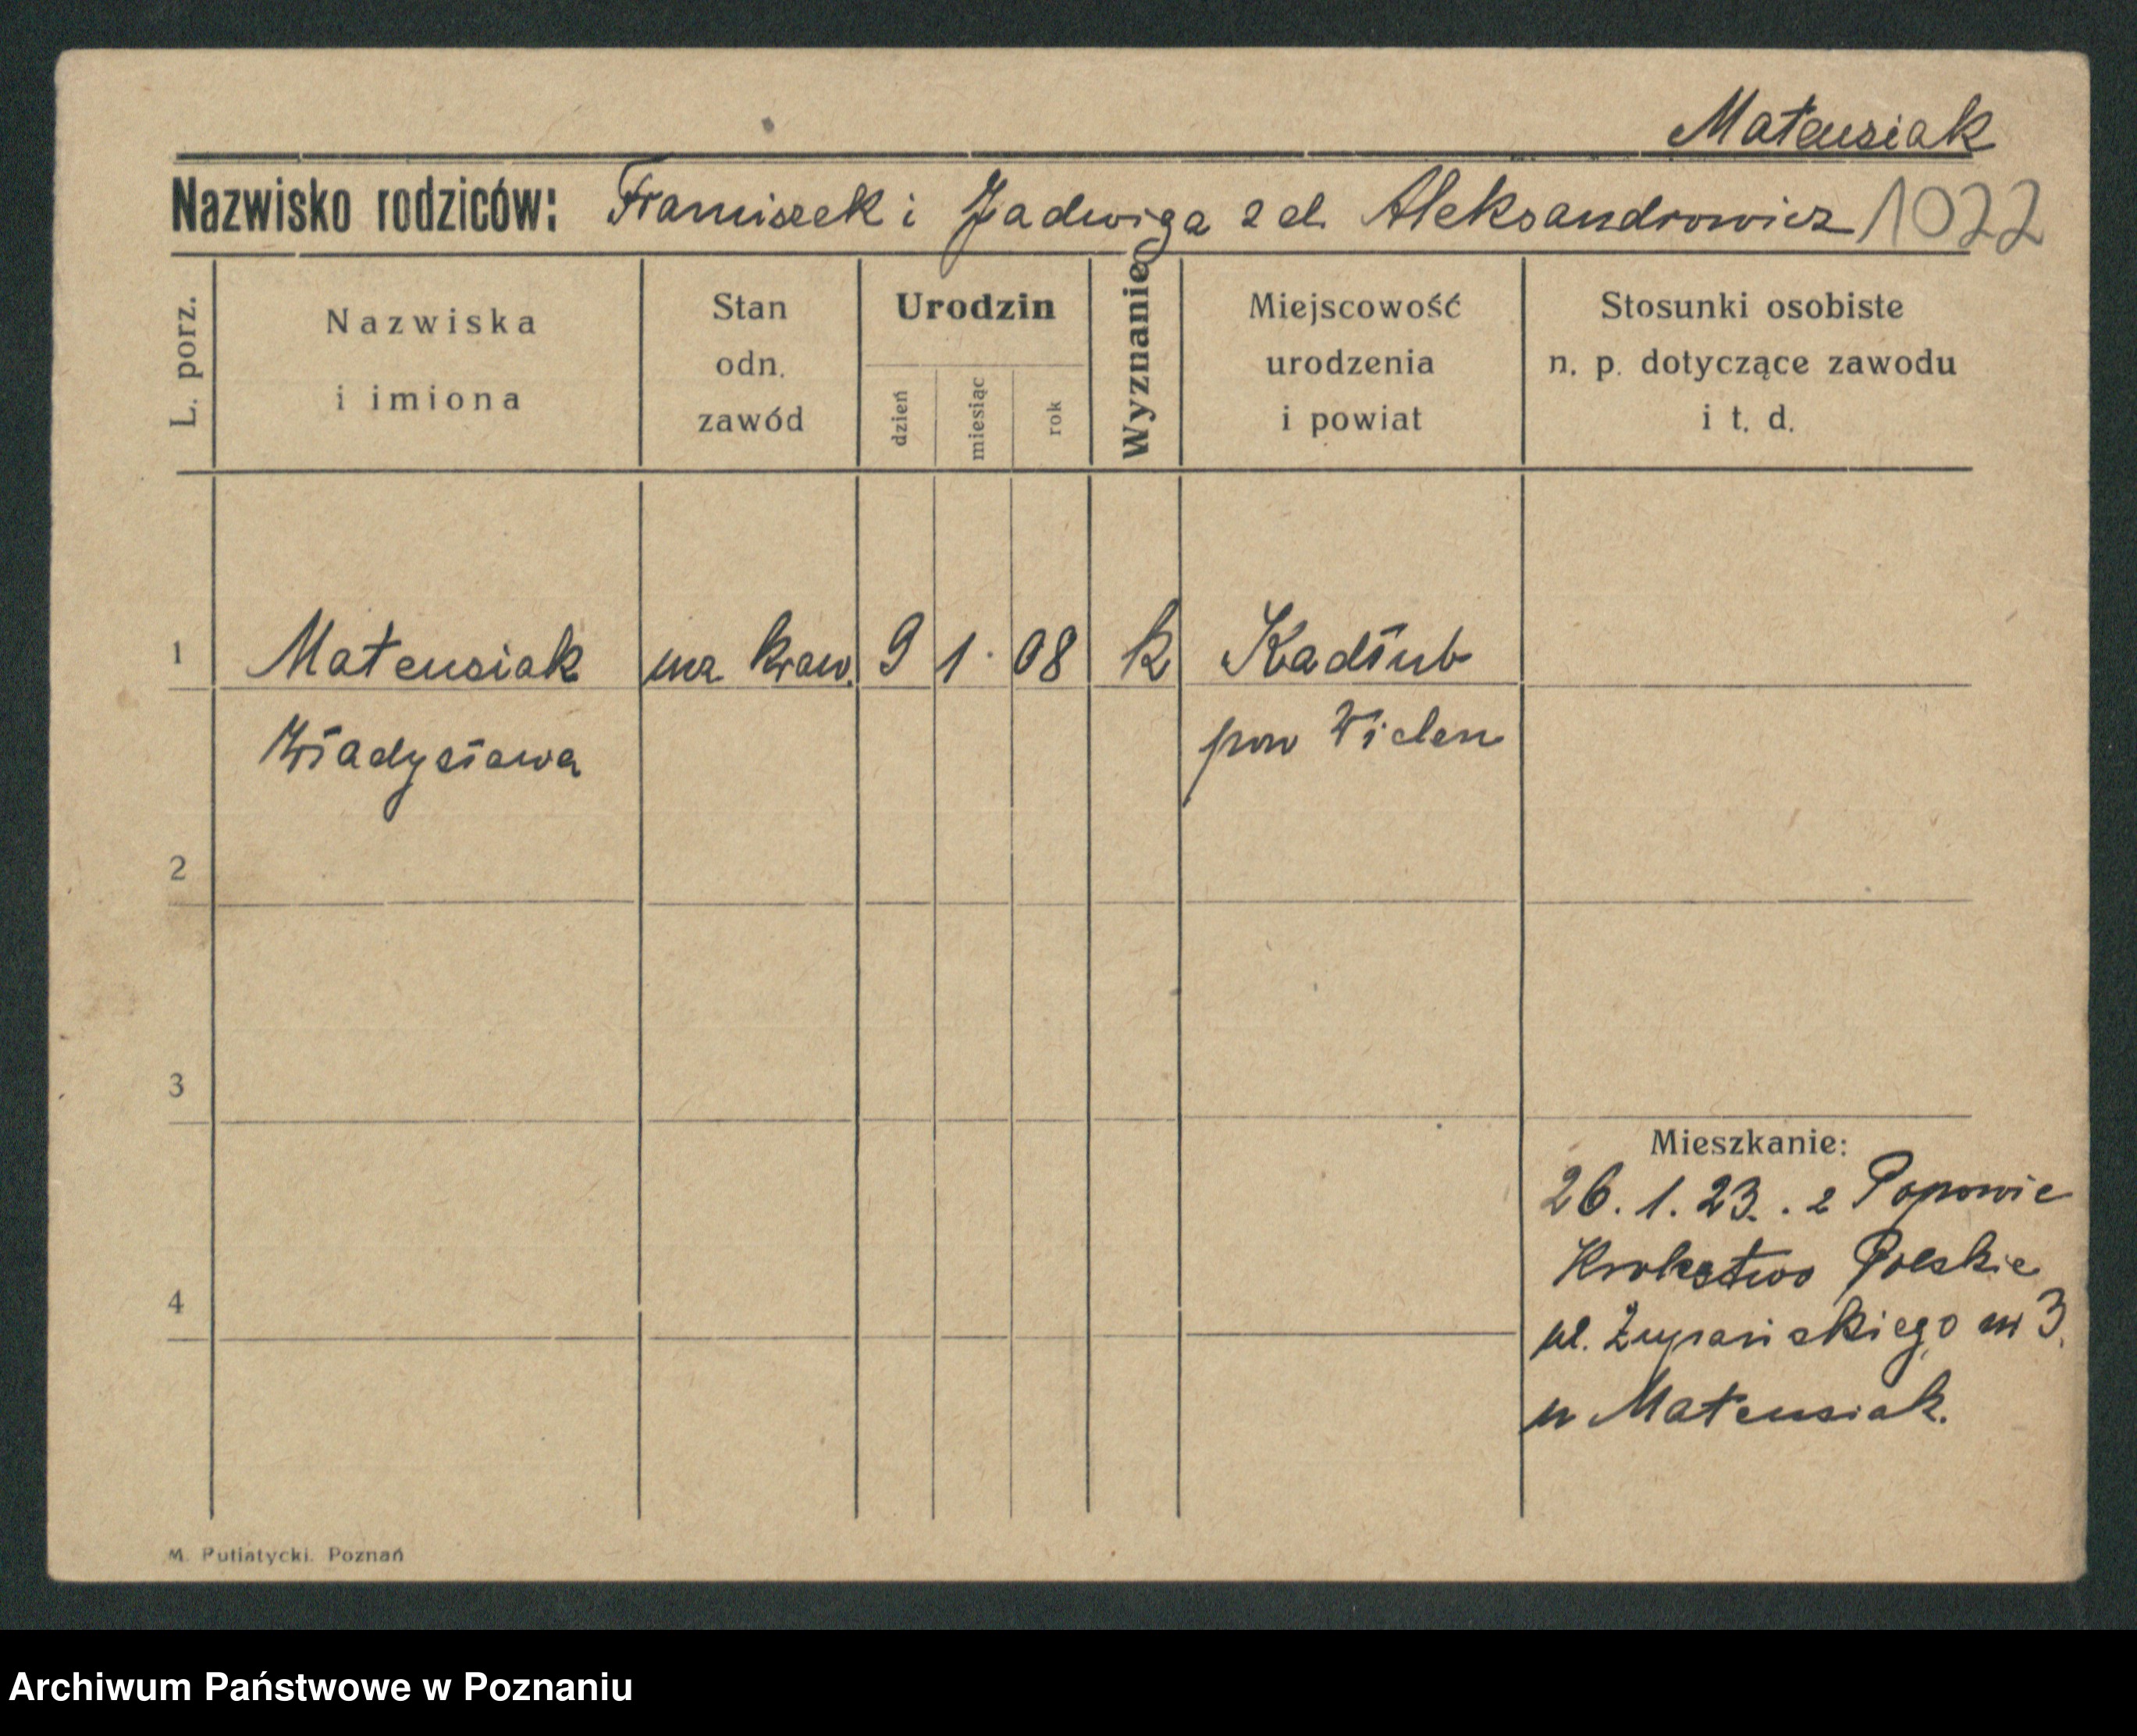 Mateusiak
Nazwisko rodziców: Franciszek i Jadwiga z d. Aleksandrowicz 1022
L. porz.
Nazwiska
i imiona
Stan
odn.
zawód
Urodzin
dzień
miesiąc
rok
Wyznanie
Miejscowość
urodzenia
i powiat
Stosunki osobiste
n. p. dotyczące zawodu
i t. d.
1 Mateusiak ucz kraw. 9 1. 08 k Kadłub
Władysława pow Wieluń
2
3
4
Mieszkanie:
26. 1. 23. z Popowic
Krolestwo Polskie
ul. Żupańskiego nr 3.
u Mateusiak.
M. Putiatycki. Poznań
Archiwum Państwowe w Poznaniu